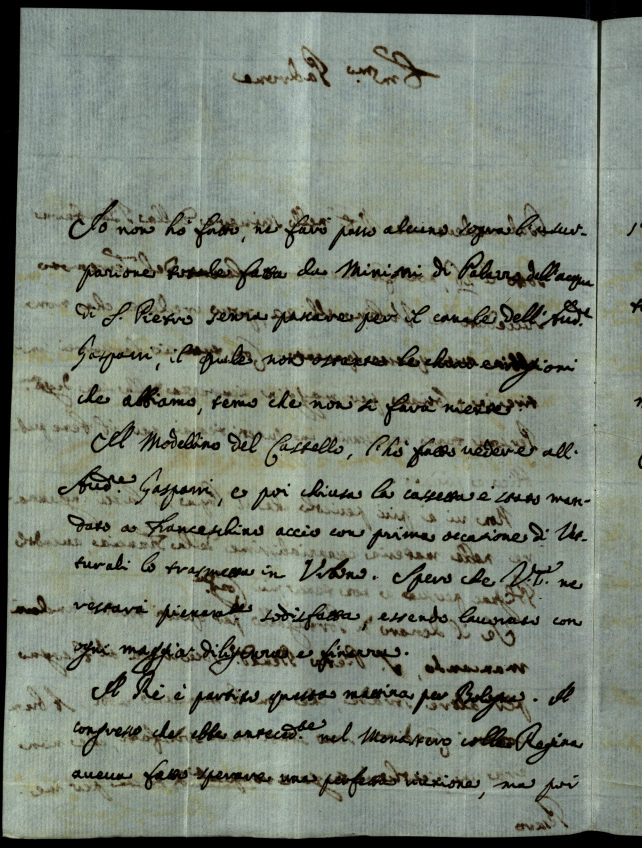 Io non hò fatto, ne farò passo alcuno sopra l'usur-
pazione totale fatta da Ministri di Palazzo dell'acqua
di S. Pietro senza passare per il canale dell'Aud.re
Gasparri, il quale non ostante le chiare ragioni
che abbiamo, temo che non si farà niente
Il Modellino del Castello, l'hò fatto vedere all'
Aud.re Gasparri, e poi chiusa la cassetta è stato man-
dato a Franceschino acciò con prima occasione di Vet-
turali lo trasmetta in Urbino. Spero che V.S. ne
restarà pienam.te sodisfatta, essendo lavorato con
ogni maggior diligenza e finezza.
Il Rè è partito questa mattina per Bologna. Il
congresso che ebbe anteced.te nel Monastero colla Regina
aveva fatto sperare una perfetta riunione, ma poi